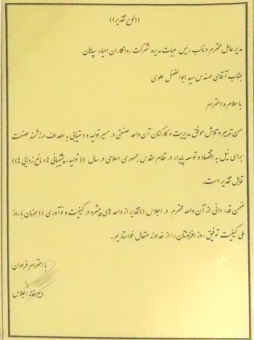 ((لوح تقدیر))
مدیر عامل محترم و نائب رئیس هیات مدیره شرکت روانکاران احیاء سپاهان
جناب آقای مهندس سید ابوالفضل علوی
با سلام و احترام
حسن تدبیر و تلاش موفق مدیریت و کارکنان آن واحد صنعتی در مسیر تولید و دستیابی به اهداف ارزشمند صنعت
برای نیل به اقتصاد و توسعه پایدار در نظام مقدس جمهوری اسلامی در سال ((تولید، پشتیبانی ها و مانع زدایی ها))
قابل تقدیر است.
ضمن قدردانی از آن واحد محترم در اجلاس ((تقدیر از واحد های پیشرو در کیفیت و نوآوری)) همزمان با روز
ملی کیفیت توفیق روز افزونتان را از خداوند متعال خواستاریم.
با احترام فراوان
دبیرخانه اجلاس